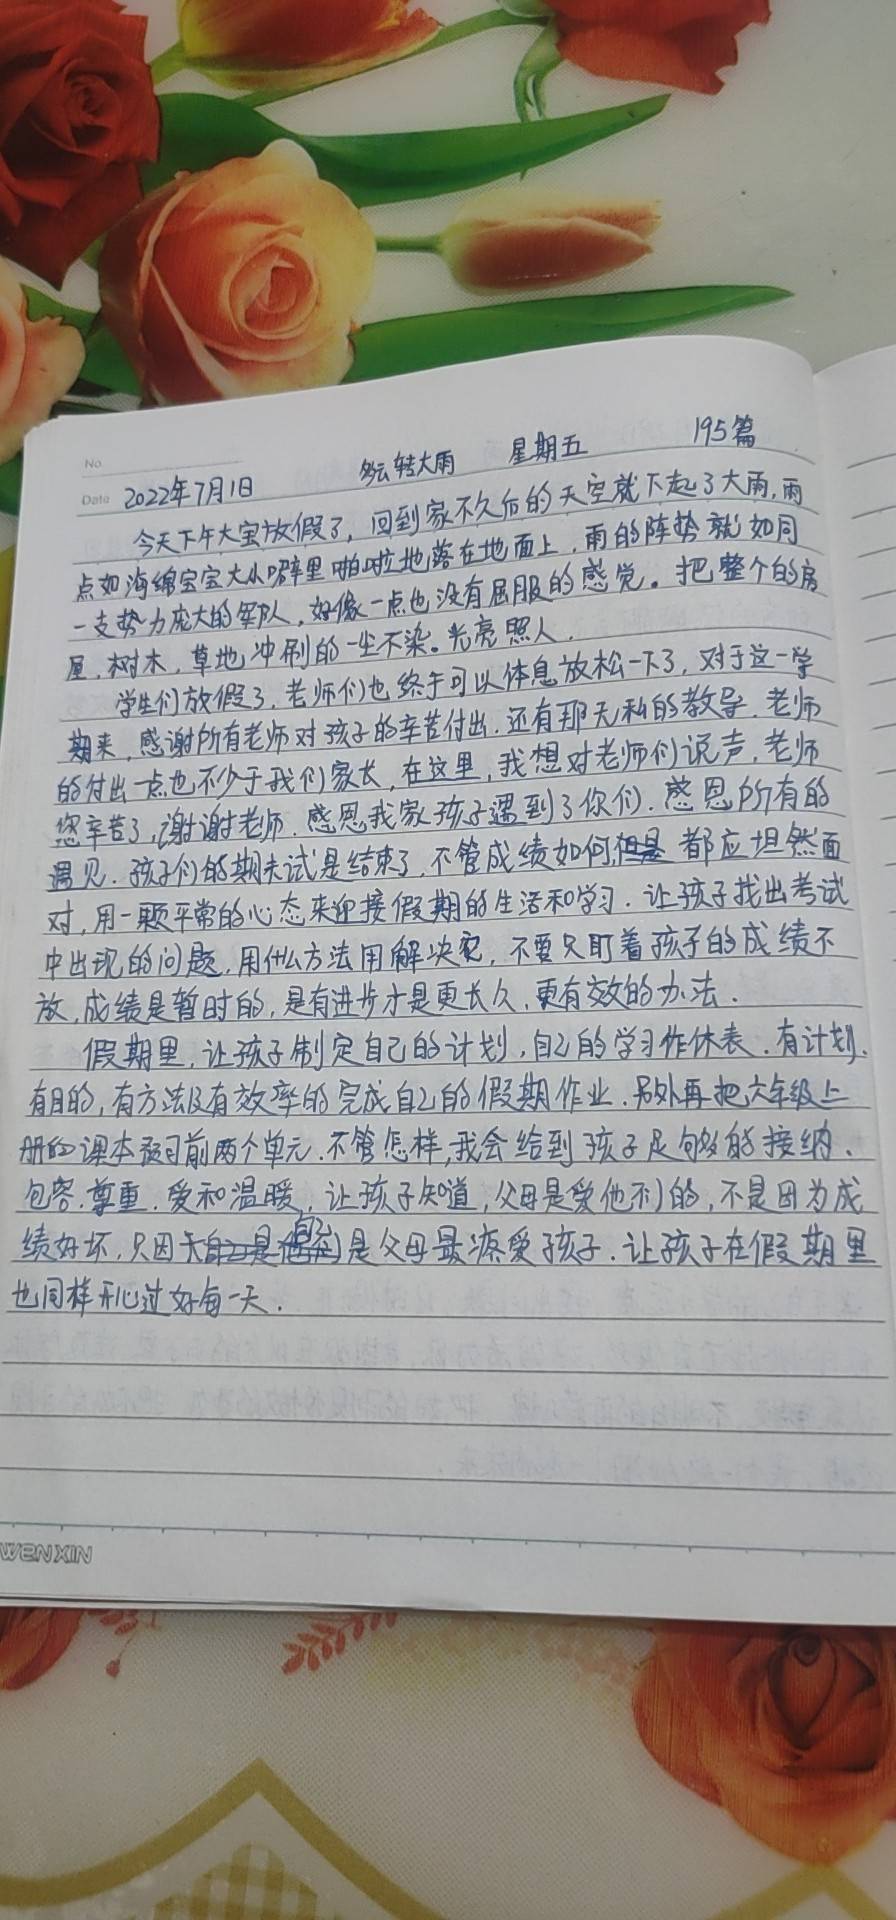 195篇
No.
多云转大雨 星期五
Date 2022年7月1日
今天下午大宝放假了，回到家不久后的天空就下起了大雨，雨
点如海绵宝宝大小噼里啪啦地落在地面上，雨的阵势就如同
一支势力庞大的军队，好像一点也没有屈服的感觉。把整个的房
屋，树木，草地冲刷的一尘不染。光亮照人．
学生们放假了，老师们也终于可以休息放松一下了，对于这一学
期来，感谢所有老师对孩子的辛苦付出．还有那无私的教导．老师
的付出一点也不少于我们家长，在这里，我想对老师们说声，老师
您辛苦了，谢谢老师．感恩我家孩子遇到了你们．感恩所有的
遇见．孩子们的期末试是结束了，不管成绩如何，都应坦然面
对，用一颗平常的心态来迎接假期的生活和学习．让孩子找出考试
中出现的问题，用什么方法用解决它，不要只盯着孩子的成绩不
放，成绩是暂时的，是有进步才是更长久，更有效的办法．
假期里，让孩子制定自己的计划，自己的学习作休表．有计划、
有目的，有方法及有效率的完成自己的假期作业．另外再把六年级上
册的课本预习前两个单元．不管怎样，我会给到孩子足够的接纳、
包容．尊重．爱和温暖，让孩子知道，父母是爱他们的，不是因为成
绩好坏，只因是父母最疼爱孩子．让孩子在假期里
也同样开心过好每一天．
WENXIN